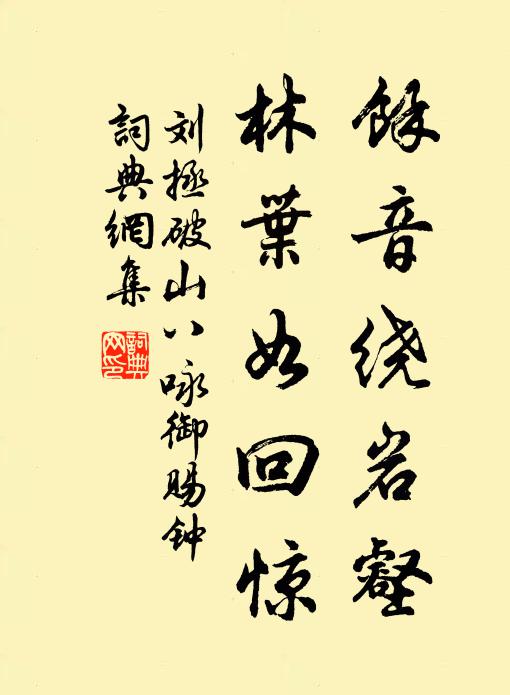 餘音绕岩壑
林葉如回惊
刘拯破山八咏御赐钟
詞典網集
詞典网印